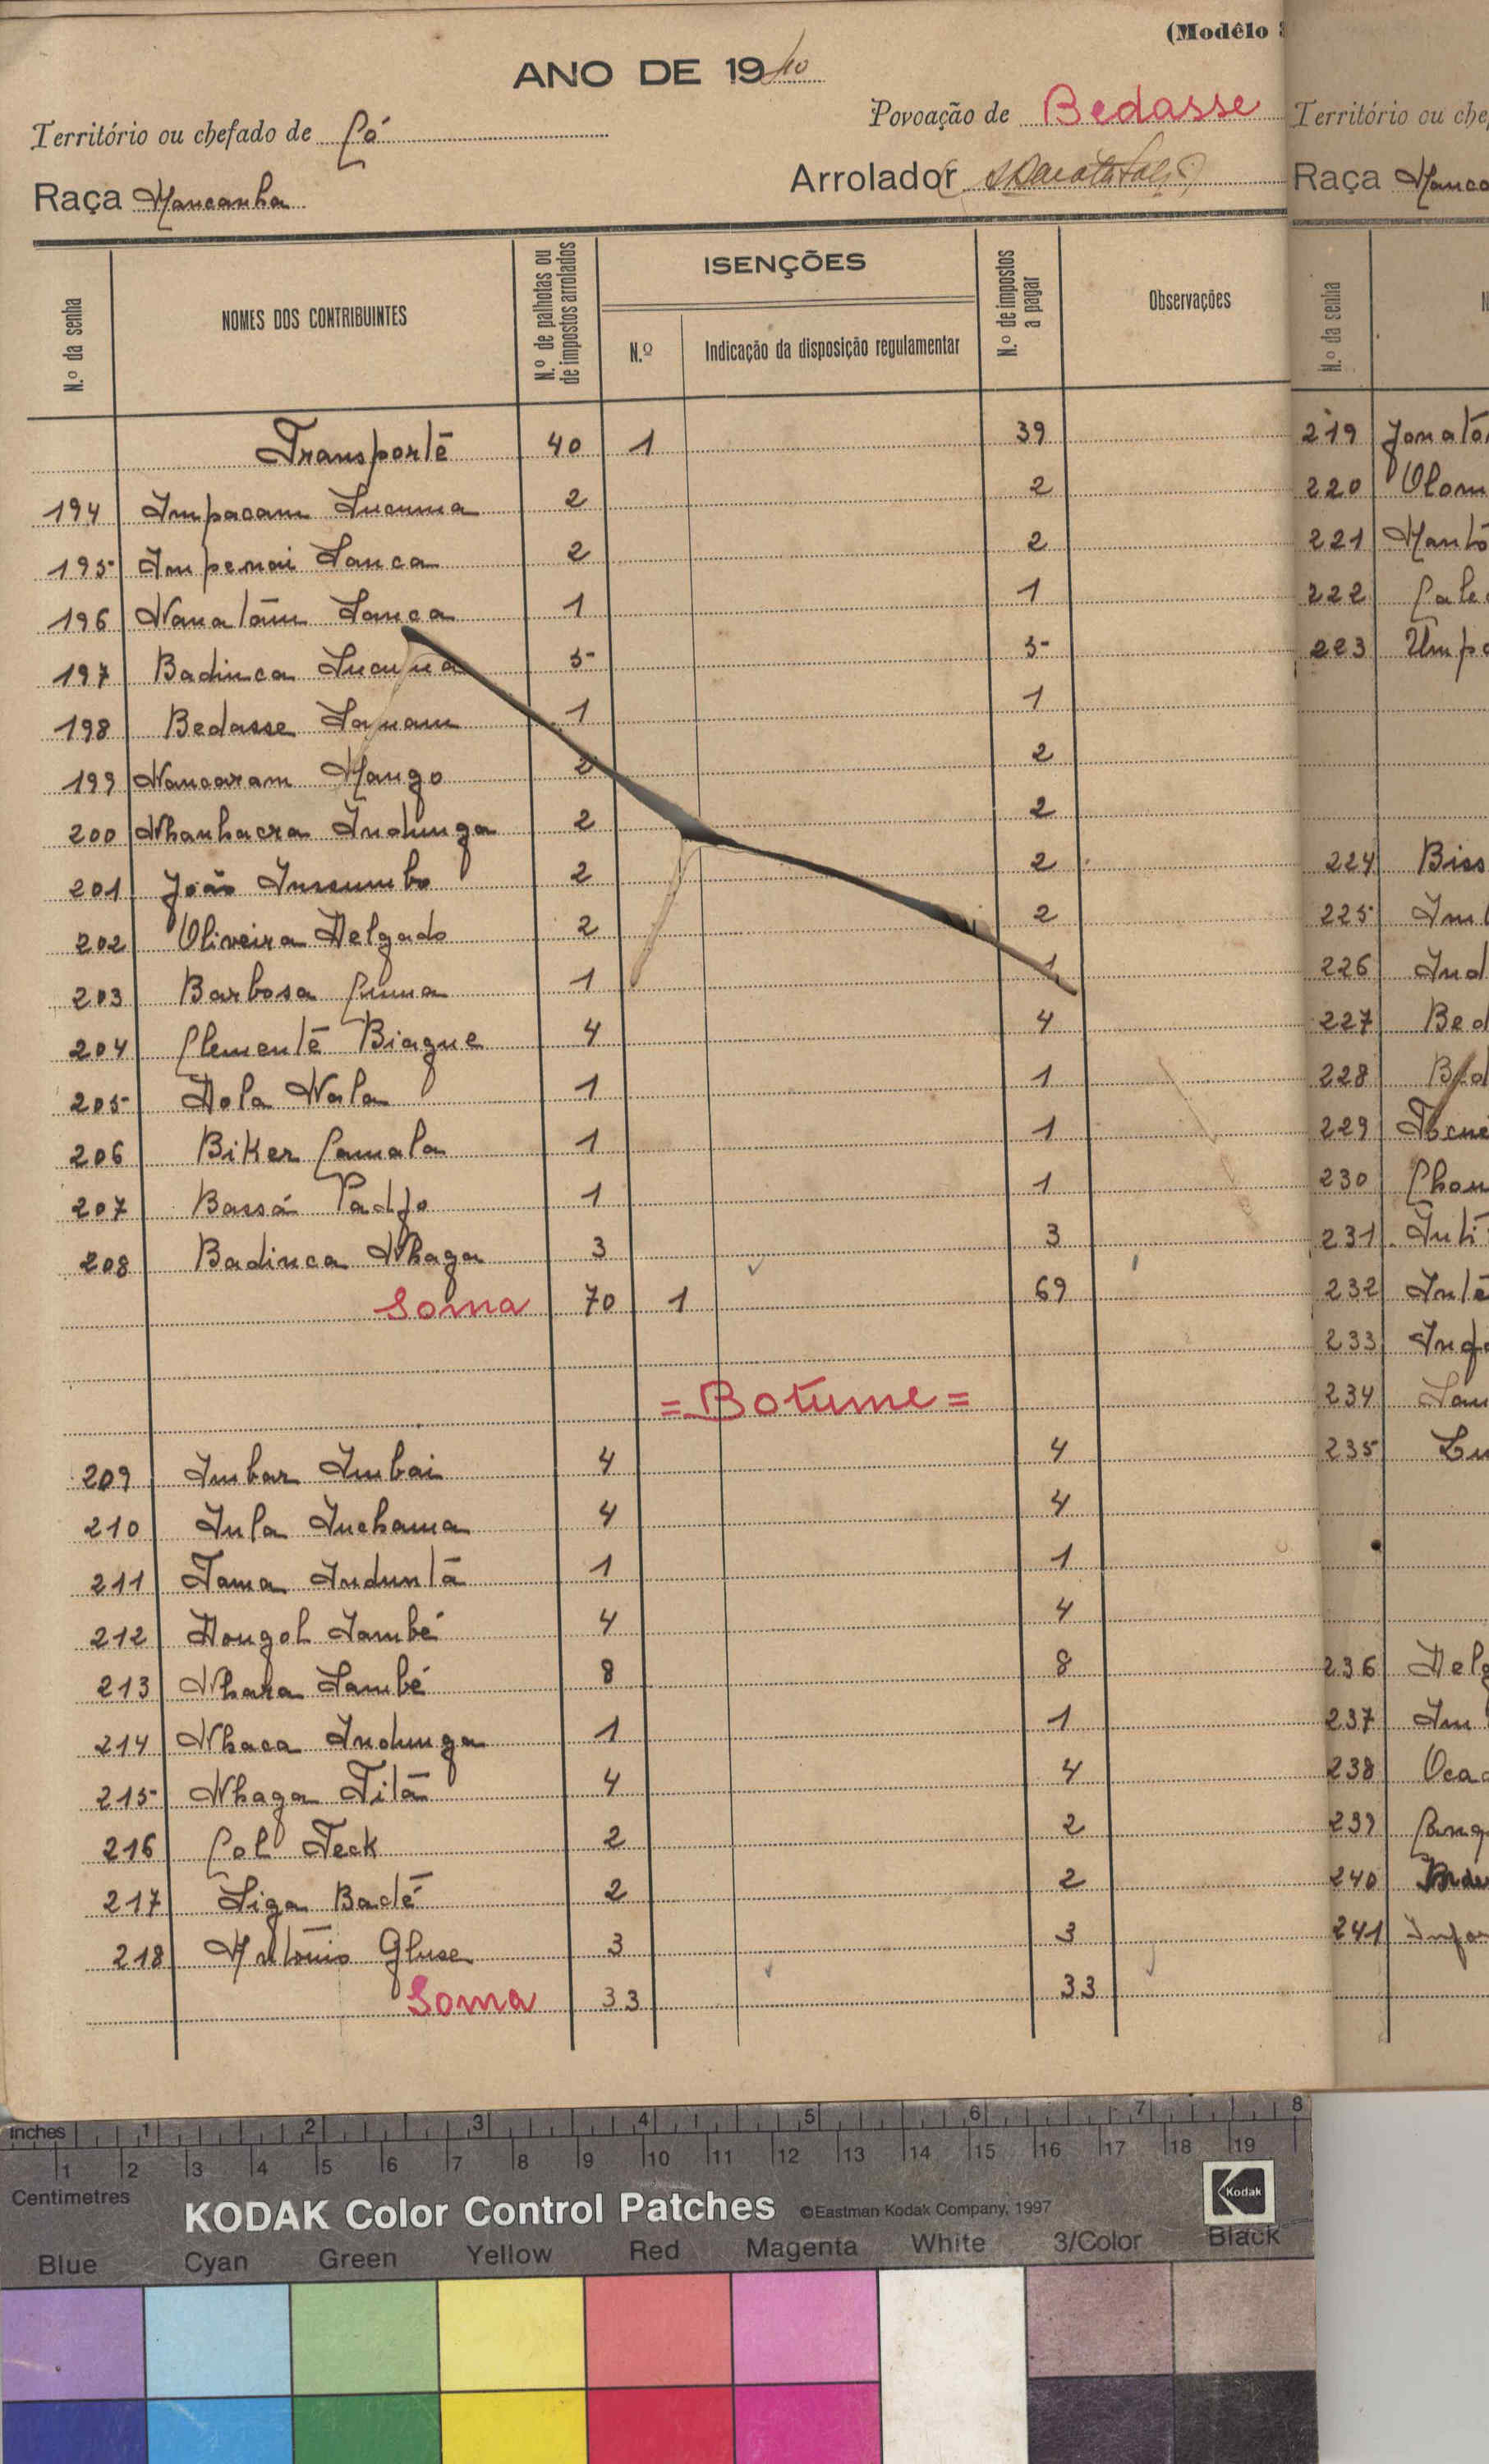 (Modêlo
ANO DE 1940
Território ou chefado de Có
Povoação de Bedasse
Raça Mancanha
Arrolador
N.º da senha
NOMES DOS CONTRIBUINTES
N.º de palhotas ou de impostos arrolados
ISENÇÕES
N.º
Indicação da disposição regulamentar
N.º de impostos a pagar
Observações
Transporte 40 1 39
194 Impacam Incuma 2 2
195 Impenai Sanca 2 2
196 Nanatām Sanca 1 1
197 Badinca Incuma 5 5
198 Bedasse Samam 1 1
199 Nancaram Mango 2 2
200 Nhanhacra Indunga 2 2
201 João Inssumbo 2 2
202 Oliveira Delgado 2 2
203 Barbosa Cuma 1 1
204 Clemente Biague 4 4
205 Dola Nala 1 1
206 Biker Camala 1 1
207 Bassá Padjo 1 1
208 Badinca Nhaga 3 3
Soma 70 1 69
= Botume =
209 Imbar Imbai 4 4
210 Inla Inchama 4 4
211 Tama Induntā 1 1
212 Dongol Sambé 4 4
213 Nhara Sambé 8 8
214 Nhaca Indunga 1 1
215 Nhaga Titā 4 4
216 Col Teck 2 2
217 Siga Badé 2 2
218 António Gluse 3 3
Soma 33 33
Território ou che
Raça Manca
N.º da senha
219 Jonató
220 Olom
221 Mantó
222 Cale
223 Ump
224 Biss
225 Im
226 Ind
227 Bed
228 Bed
229
230 Chon
231 Inti
232 Inte
233 Inf
234 San
235
236 Delg
237 Im
238 Oca
239
240
241 Infa
inches 1 2 3 4 5 6 7 8
1 2 3 4 5 6 7 8 9 10 11 12 13 14 15 16 17 18 19
Centimetres
KODAK Color Control Patches ©Eastman Kodak Company, 1997
Kodak
Blue Cyan Green Yellow Red Magenta White 3/Color Black